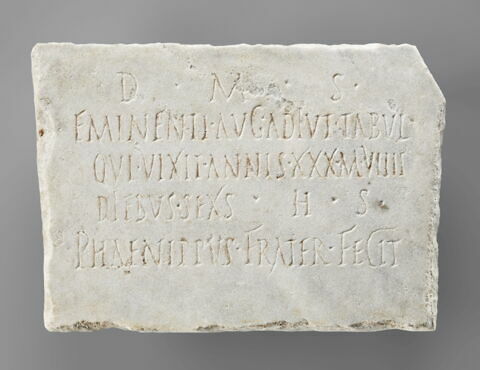 D · M · S ·
EMINENTI·AVG·ADIVT·TABVL
QVI·VIXIT·ANNIS·XXX·M·VIIII
DIEBVS·SEXS · H · S
PHAENIPPVS·FRATER·FECIT